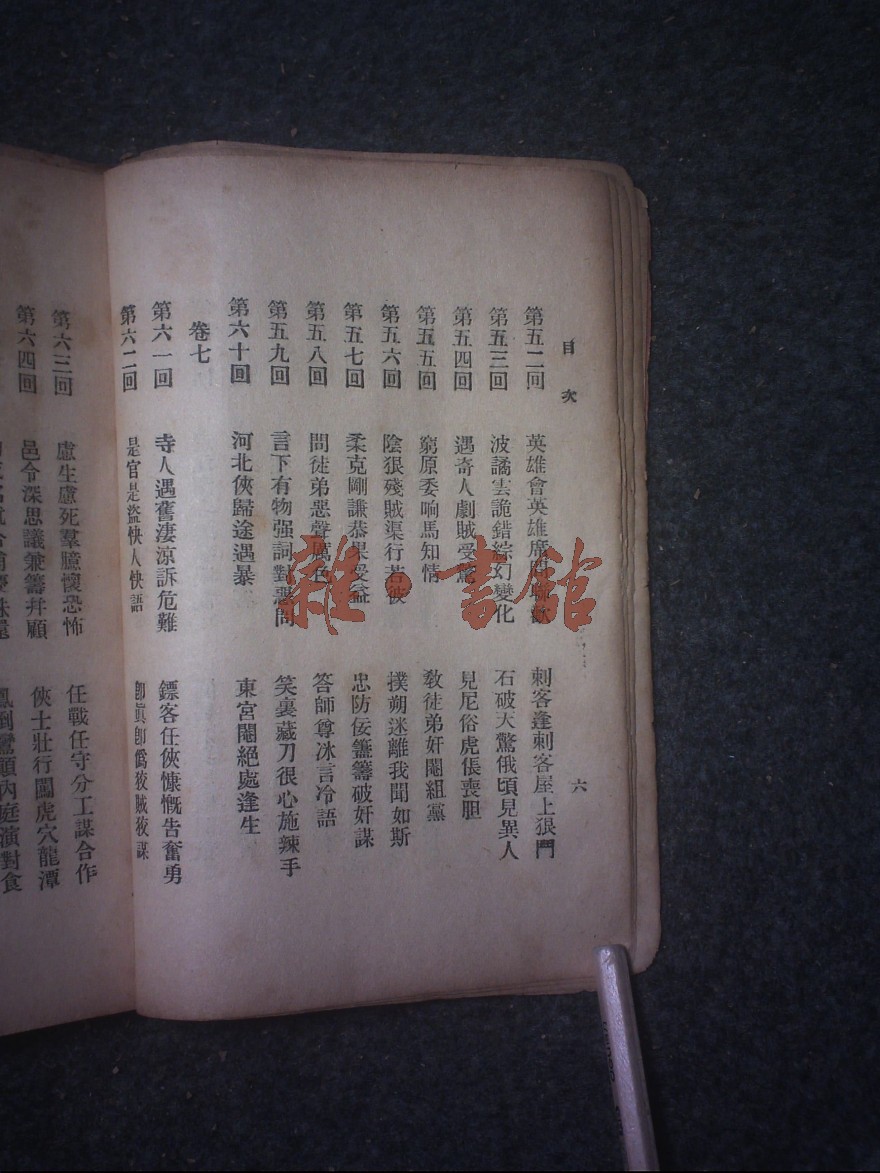 目次
六
第五二回 英雄會英雄席 刺客逢刺客屋上狠鬥
第五三回 波譎雲詭錯綜幻變化 石破天驚俄頃見異人
第五四回 遇奇人劇賊受驚 見尼俗虎倀喪胆
第五五回 窮原委响馬知情 敎徒弟奸閹組黨
第五六回 陰狠殘賊渠行若彼 撲朔迷離我聞如斯
第五七回 柔克剛謙恭果受益 忠防佞籌破奸謀
第五八回 問徒弟惡聲厲色 答師尊冰言冷語
第五九回 言下有物强詞對惡問 笑裏藏刀很心施辣手
第六十回 河北俠歸途遇暴 東宮閹絕處逢生
卷七
第六一回 寺人遇舊淒涼訴危難 鏢客任俠慷慨告奮勇
第六二回 是官是盜快人快語 卽眞卽僞狡賊狡謀
第六三回 慮生慮死羣臆懷恐怖 任戰任守分工謀合作
第六四回 邑令深思議兼籌幷顧 俠士壯行闖虎穴龍潭
內庭演對食
雜·書館